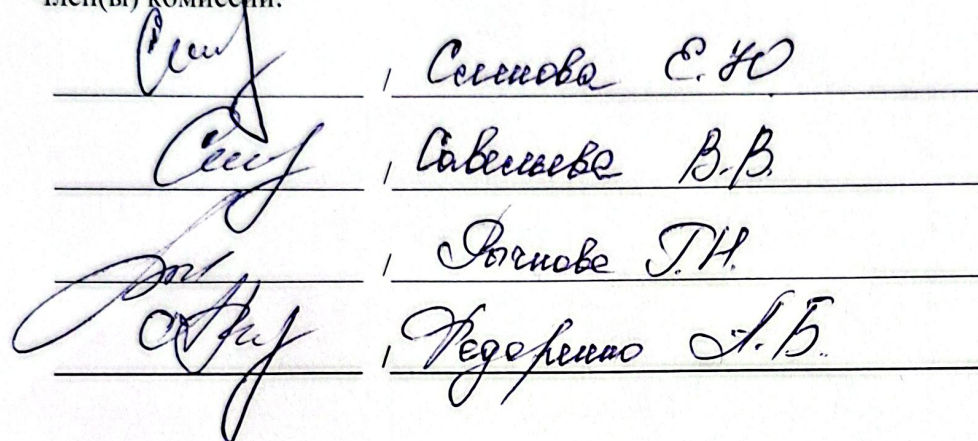 член(ы) комиссии:
, Симнова Е.Ю
, Савельева В.В.
, Рычкова Г.Н.
, Федоренко А.Б.